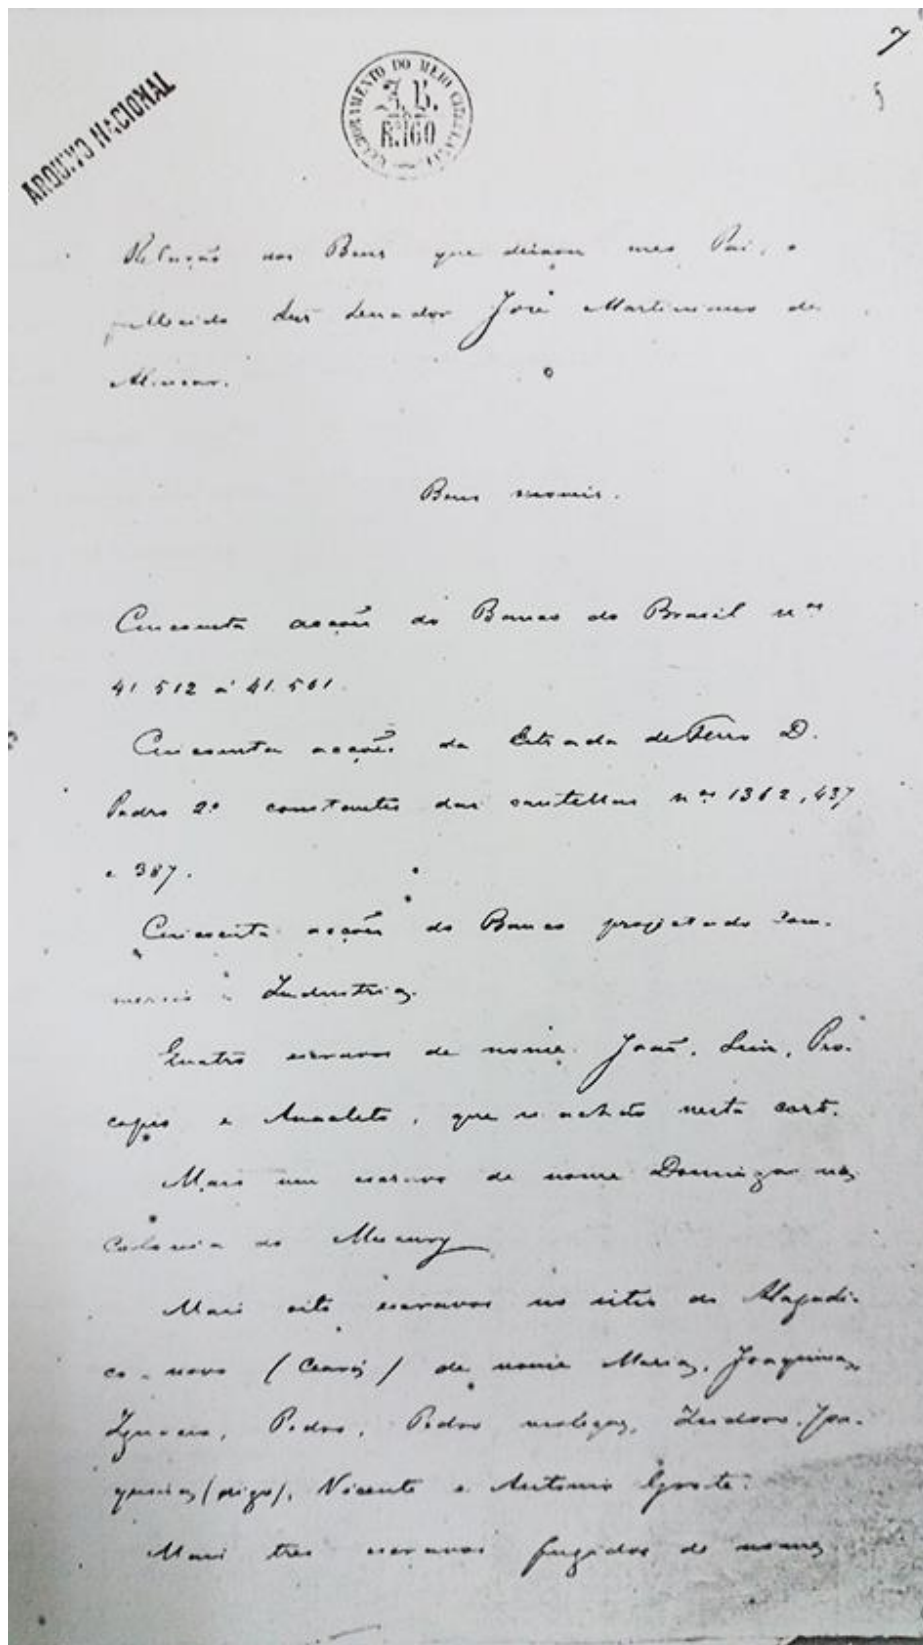 7
ARQUIVO NACIONAL
Relação dos Bens que deixou meu Pai, o
fallecido Snr Senador José Martiniano de
Alencar.
Bens moveis.
Cincoenta acções do Banco do Brasil nos
41.512 á 41.561.
Cincoenta acções da Estrada de Ferro D.
Pedro 2º constantes das cautellas nos 1362, 437
e 387.
Cincoenta acções do Banco projetado Com-
mercio e Industria.
Quatro escravos de nome João, Luiz, Pro-
copio e Anacleto, que se achão nesta corte.
Mais um escravo de nome Domingos na
Colonia do Mucury
Mais oito escravos no sitio do Alagadi-
ço-novo (Ceará) de nome Maria, Joaquina,
Ignacio, Pedro, Pedro, Izidoro, Joa-
quina (digo), Vicente e Antonio
Mais tres escravos fugidos de nome